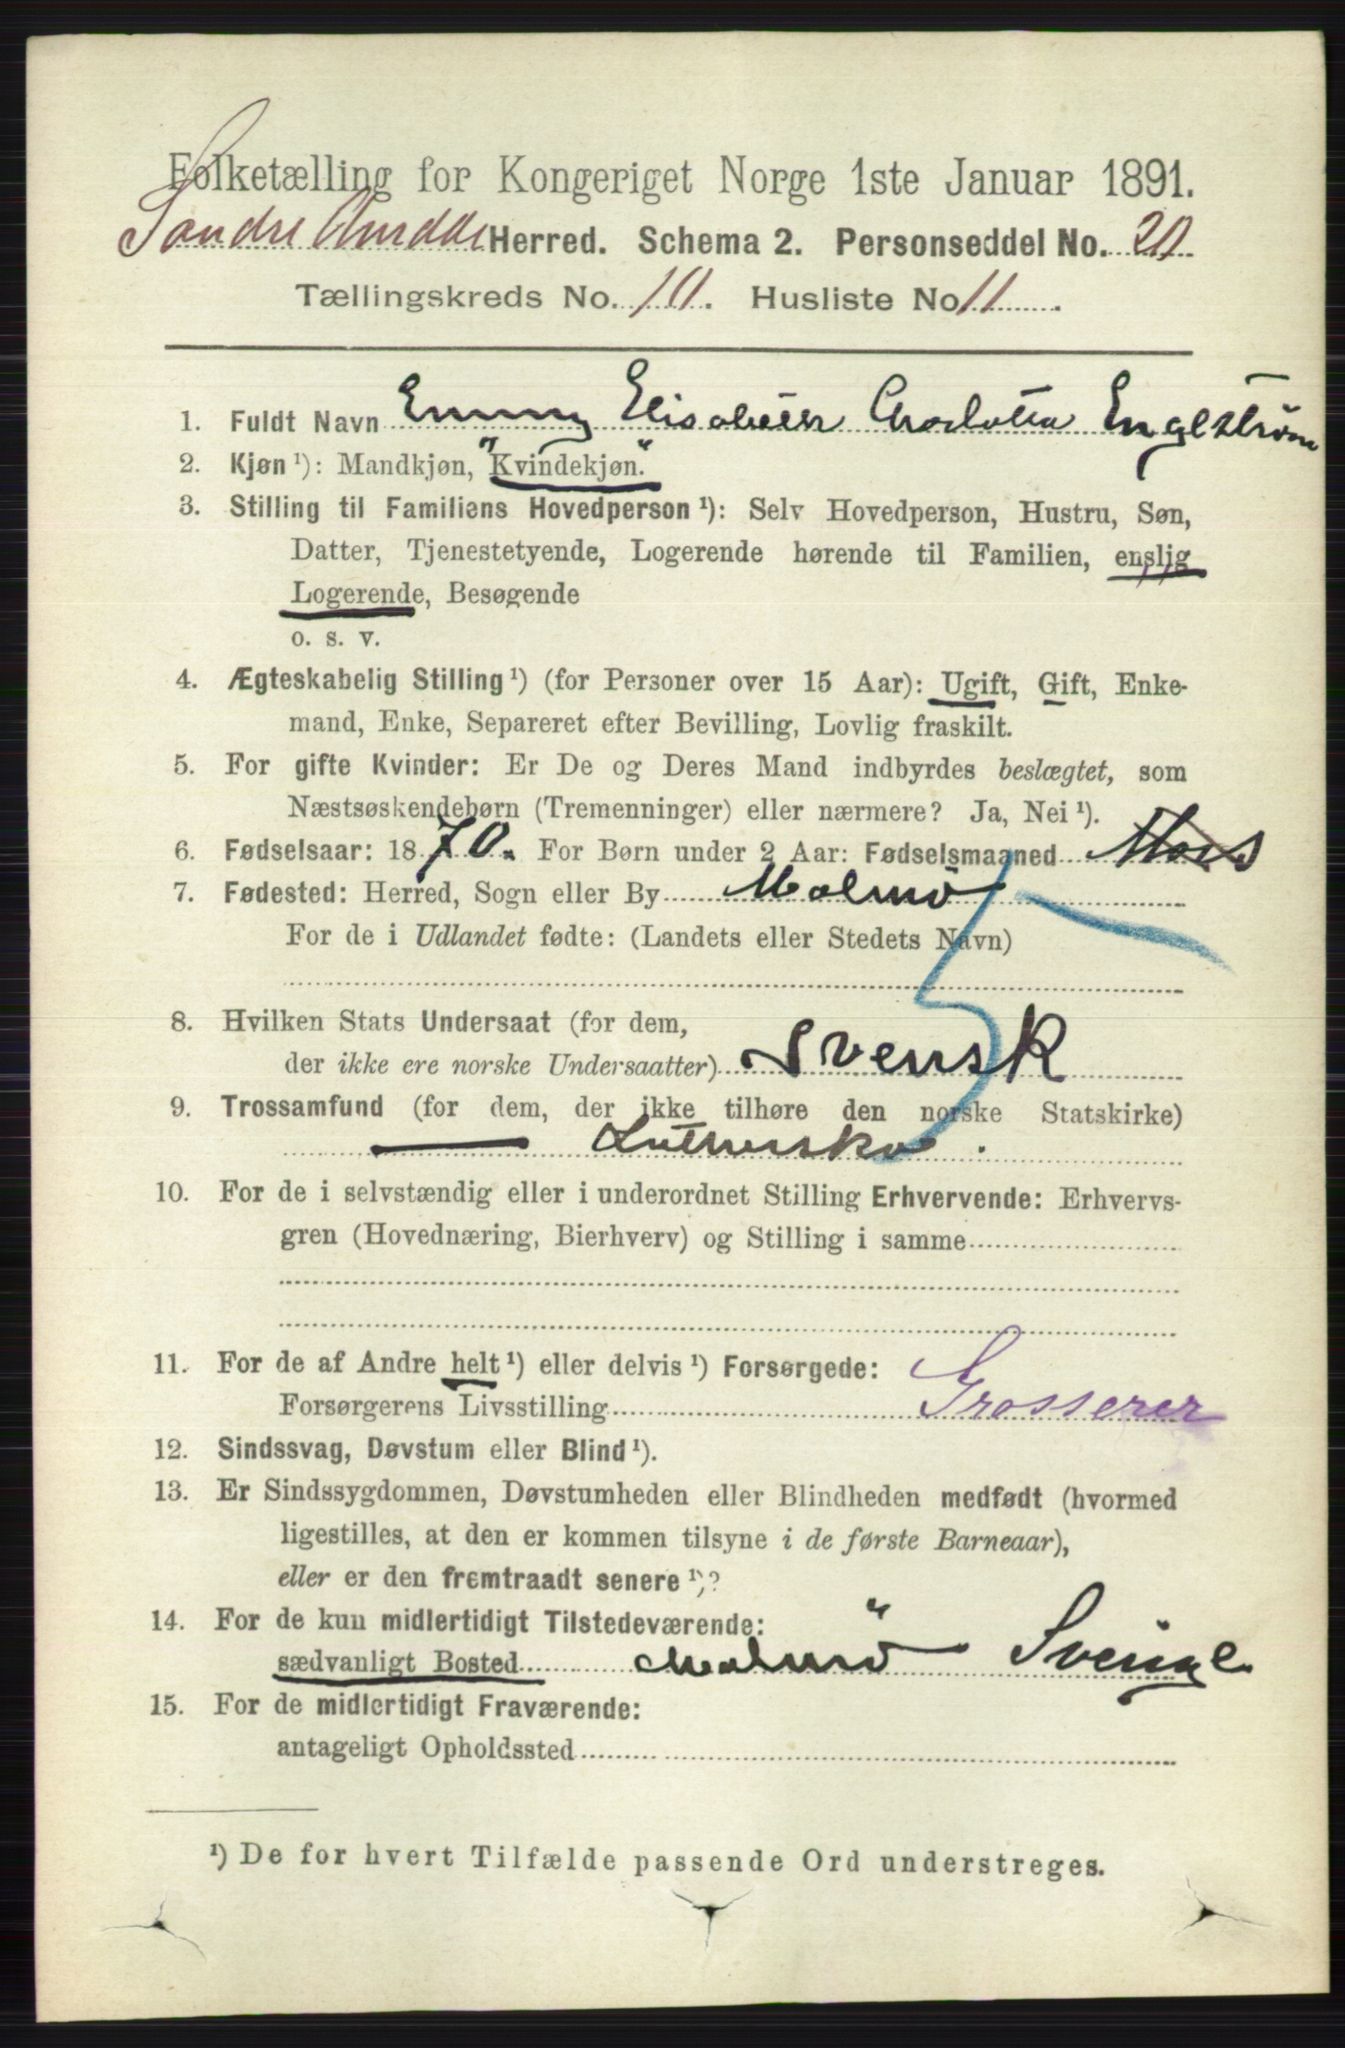 Folketælling for Kongeriget Norge 1ste Januar 1891.
Søndre Aurdal Herred. Schema 2. Personseddel No. 20
Tællingskreds No. 10. Husliste No 11.
1. Fuldt Navn Emmy Elisabeth Charlotta Engelström
2. Kjøn ¹): Mandkjøn, "Kvindekjøn."
3. Stilling til Familiens Hovedperson ¹): Selv Hovedperson, Hustru, Søn,
Datter, Tjenestetyende, Logerende hørende til Familien, enslig
Logerende, Besøgende
o. s. v.
4. Ægteskabelig Stilling ¹) (for Personer over 15 Aar): Ugift, Gift, Enke-
mand, Enke, Separeret efter Bevilling, Lovlig fraskilt.
5. For gifte Kvinder: Er De og Deres Mand indbyrdes beslægtet, som
Næstsøskendebørn (Tremenninger) eller nærmere? Ja, Nei ¹).
6. Fødselsaar: 1870. For Børn under 2 Aar: Fødselsmaaned
7. Fødested: Herred, Sogn eller By Malmö
For de i Udlandet fødte: (Landets eller Stedets Navn)
5
8. Hvilken Stats Undersaat (for dem,
der ikke ere norske Undersaatter) Svensk
9. Trossamfund (for dem, der ikke tilhøre den norske Statskirke)
Lutherska.
10. For de i selvstændig eller i underordnet Stilling Erhvervende: Erhvervs-
gren (Hovednæring, Bierhverv) og Stilling i samme
11. For de af Andre helt ¹) eller delvis ¹) Forsørgede:
Forsørgerens Livsstilling Grosserer
12. Sindssvag, Døvstum eller Blind ¹).
13. Er Sindssygdommen, Døvstumheden eller Blindheden medfødt (hvormed
ligestilles, at den er kommen tilsyne i de første Barneaar),
eller er den fremtraadt senere ¹)?
14. For de kun midlertidigt Tilstedeværende:
sædvanligt Bosted Malmö Sverige
15. For de midlertidigt Fraværende:
antageligt Opholdssted
¹) De for hvert Tilfælde passende Ord understreges.